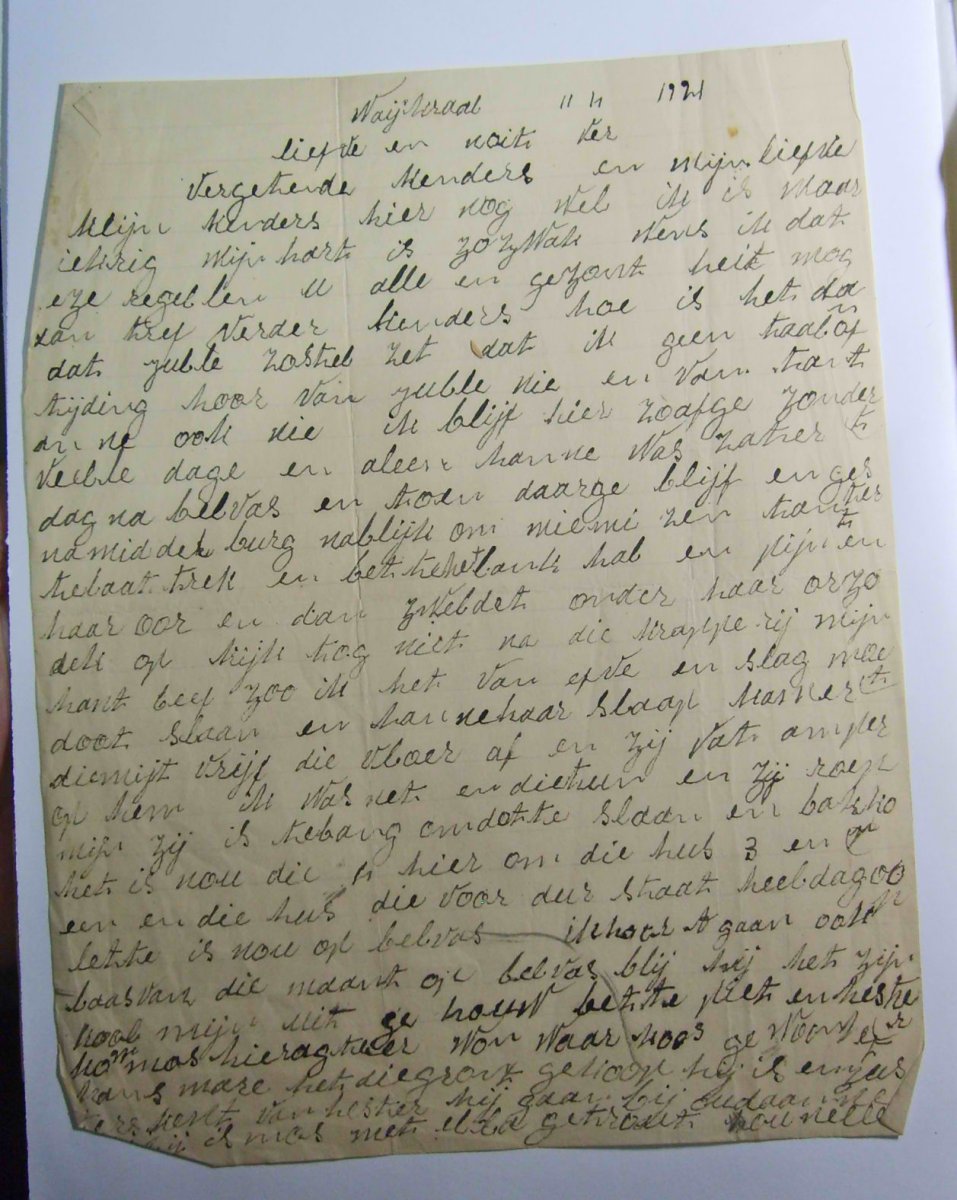 Vaijkraal 11 11 1921
liefve en noit ver
vergetende kenders en mijn liefve
klijn kenders hier nog wel ik is maar
iekrig mijn hart is zozwak wens ik dat
eze regellen u alle en gezont heit mog
aan tref verder kenders hoe is het da
dat julle zostel zet dat ik geen taal of
tijding hoor van julle nie en van tant
an ne ook nie ik blijf hier zoafge zonder
veele dage en aleen hanne was zater t
dag na belvas en toen daarge blijf en ges
na middel burg nablijk om miemi zen tant
tebaat trek en bet hehelank hal en pijn en
haar oor en dan zweldet onder haar or zo
dek op kijk tog niet na die krappe rij mijn
hant beef zoo ik het van efve en slag moe
doot slaan en hannehaar slaap kamer
diemijt vrijf die vloer af en zij vat amper
op hem ik was net en diekun en zij roep
mijn zij is tebang omdotte slaan en
het is nou die hier om die hus 3 en
een en die hus die voor deur staat heeldagoo
lette is nou op belvas ik hoor gaan ook
baasvan die maant op belvas blij hij het zijn
kool mijn uit ge houw bette piet en hester
kom mos hieragteer won waar koos ge woon
hans mare het diegront gekoop hij is en
kent van hester hij gaan bij
is mos met ella getrout nou nelle